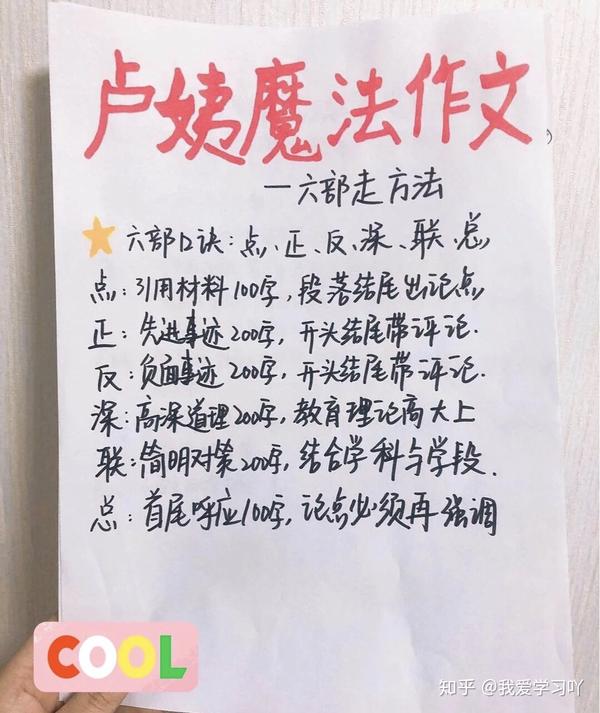 卢姨魔法作文
一六部走方法
六部口诀:点、正、反、深、联、总
点:引用材料100字,段落结尾出论点
正:先进事迹200字,开头结尾带评论.
反:负面事迹200字,开头结尾带评论.
深:高深道理200字,教育理论高大上
联:简明对策200字,结合学科与学段.
总:首尾呼应100字,论点必须再强调
COOL
知乎 @我爱学习吖